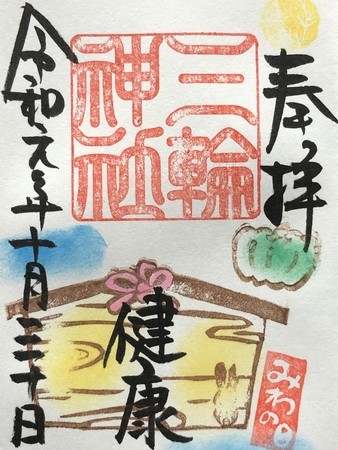 奉拝
三輪
神社
健康
みわの日
令和元年十月三十日